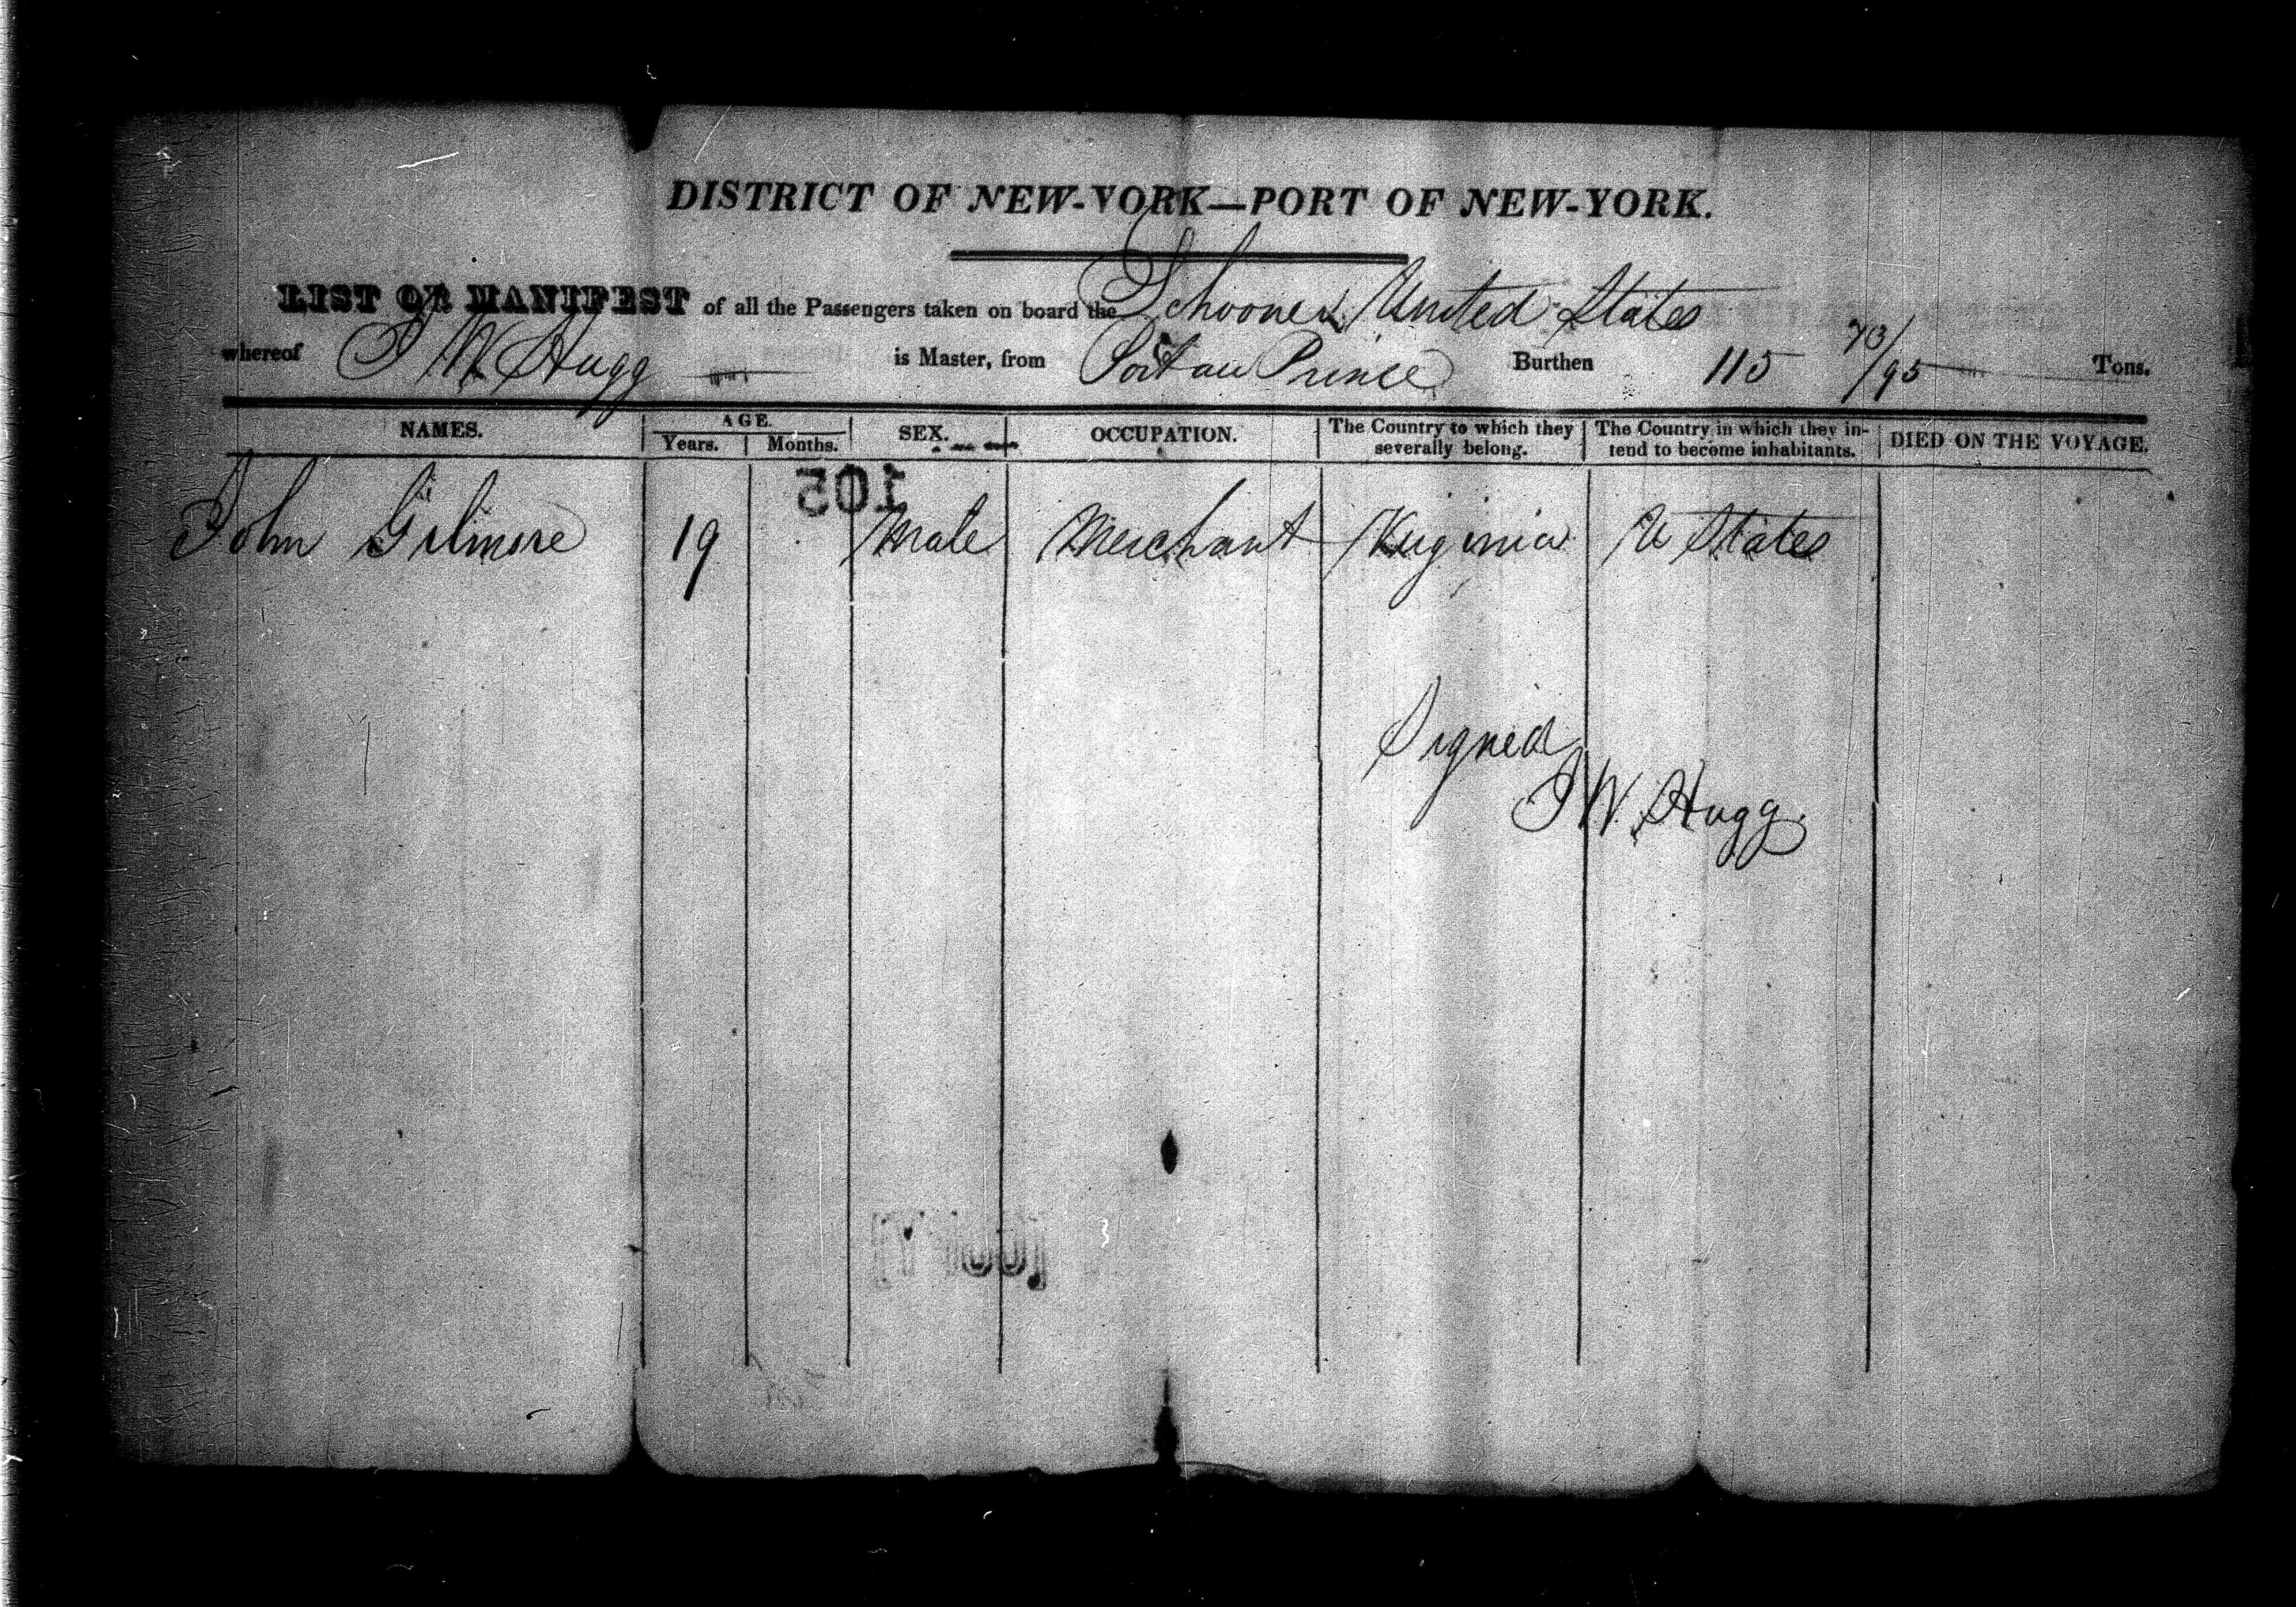 DISTRICT OF NEW-YORK—PORT OF NEW-YORK.
LIST OR MANIFEST of all the Passengers taken on board the Schooner United States
whereof J W Hugg is Master, from Port au Prince Burthen 115 73/95 Tons.
NAMES. AGE. Years. Months. SEX. OCCUPATION. The Country to which they severally belong. The Country in which they intend to become inhabitants. DIED ON THE VOYAGE.
105
John Gilmore 19 Male Merchant Virginia U States
Signed
J W. Hugg.